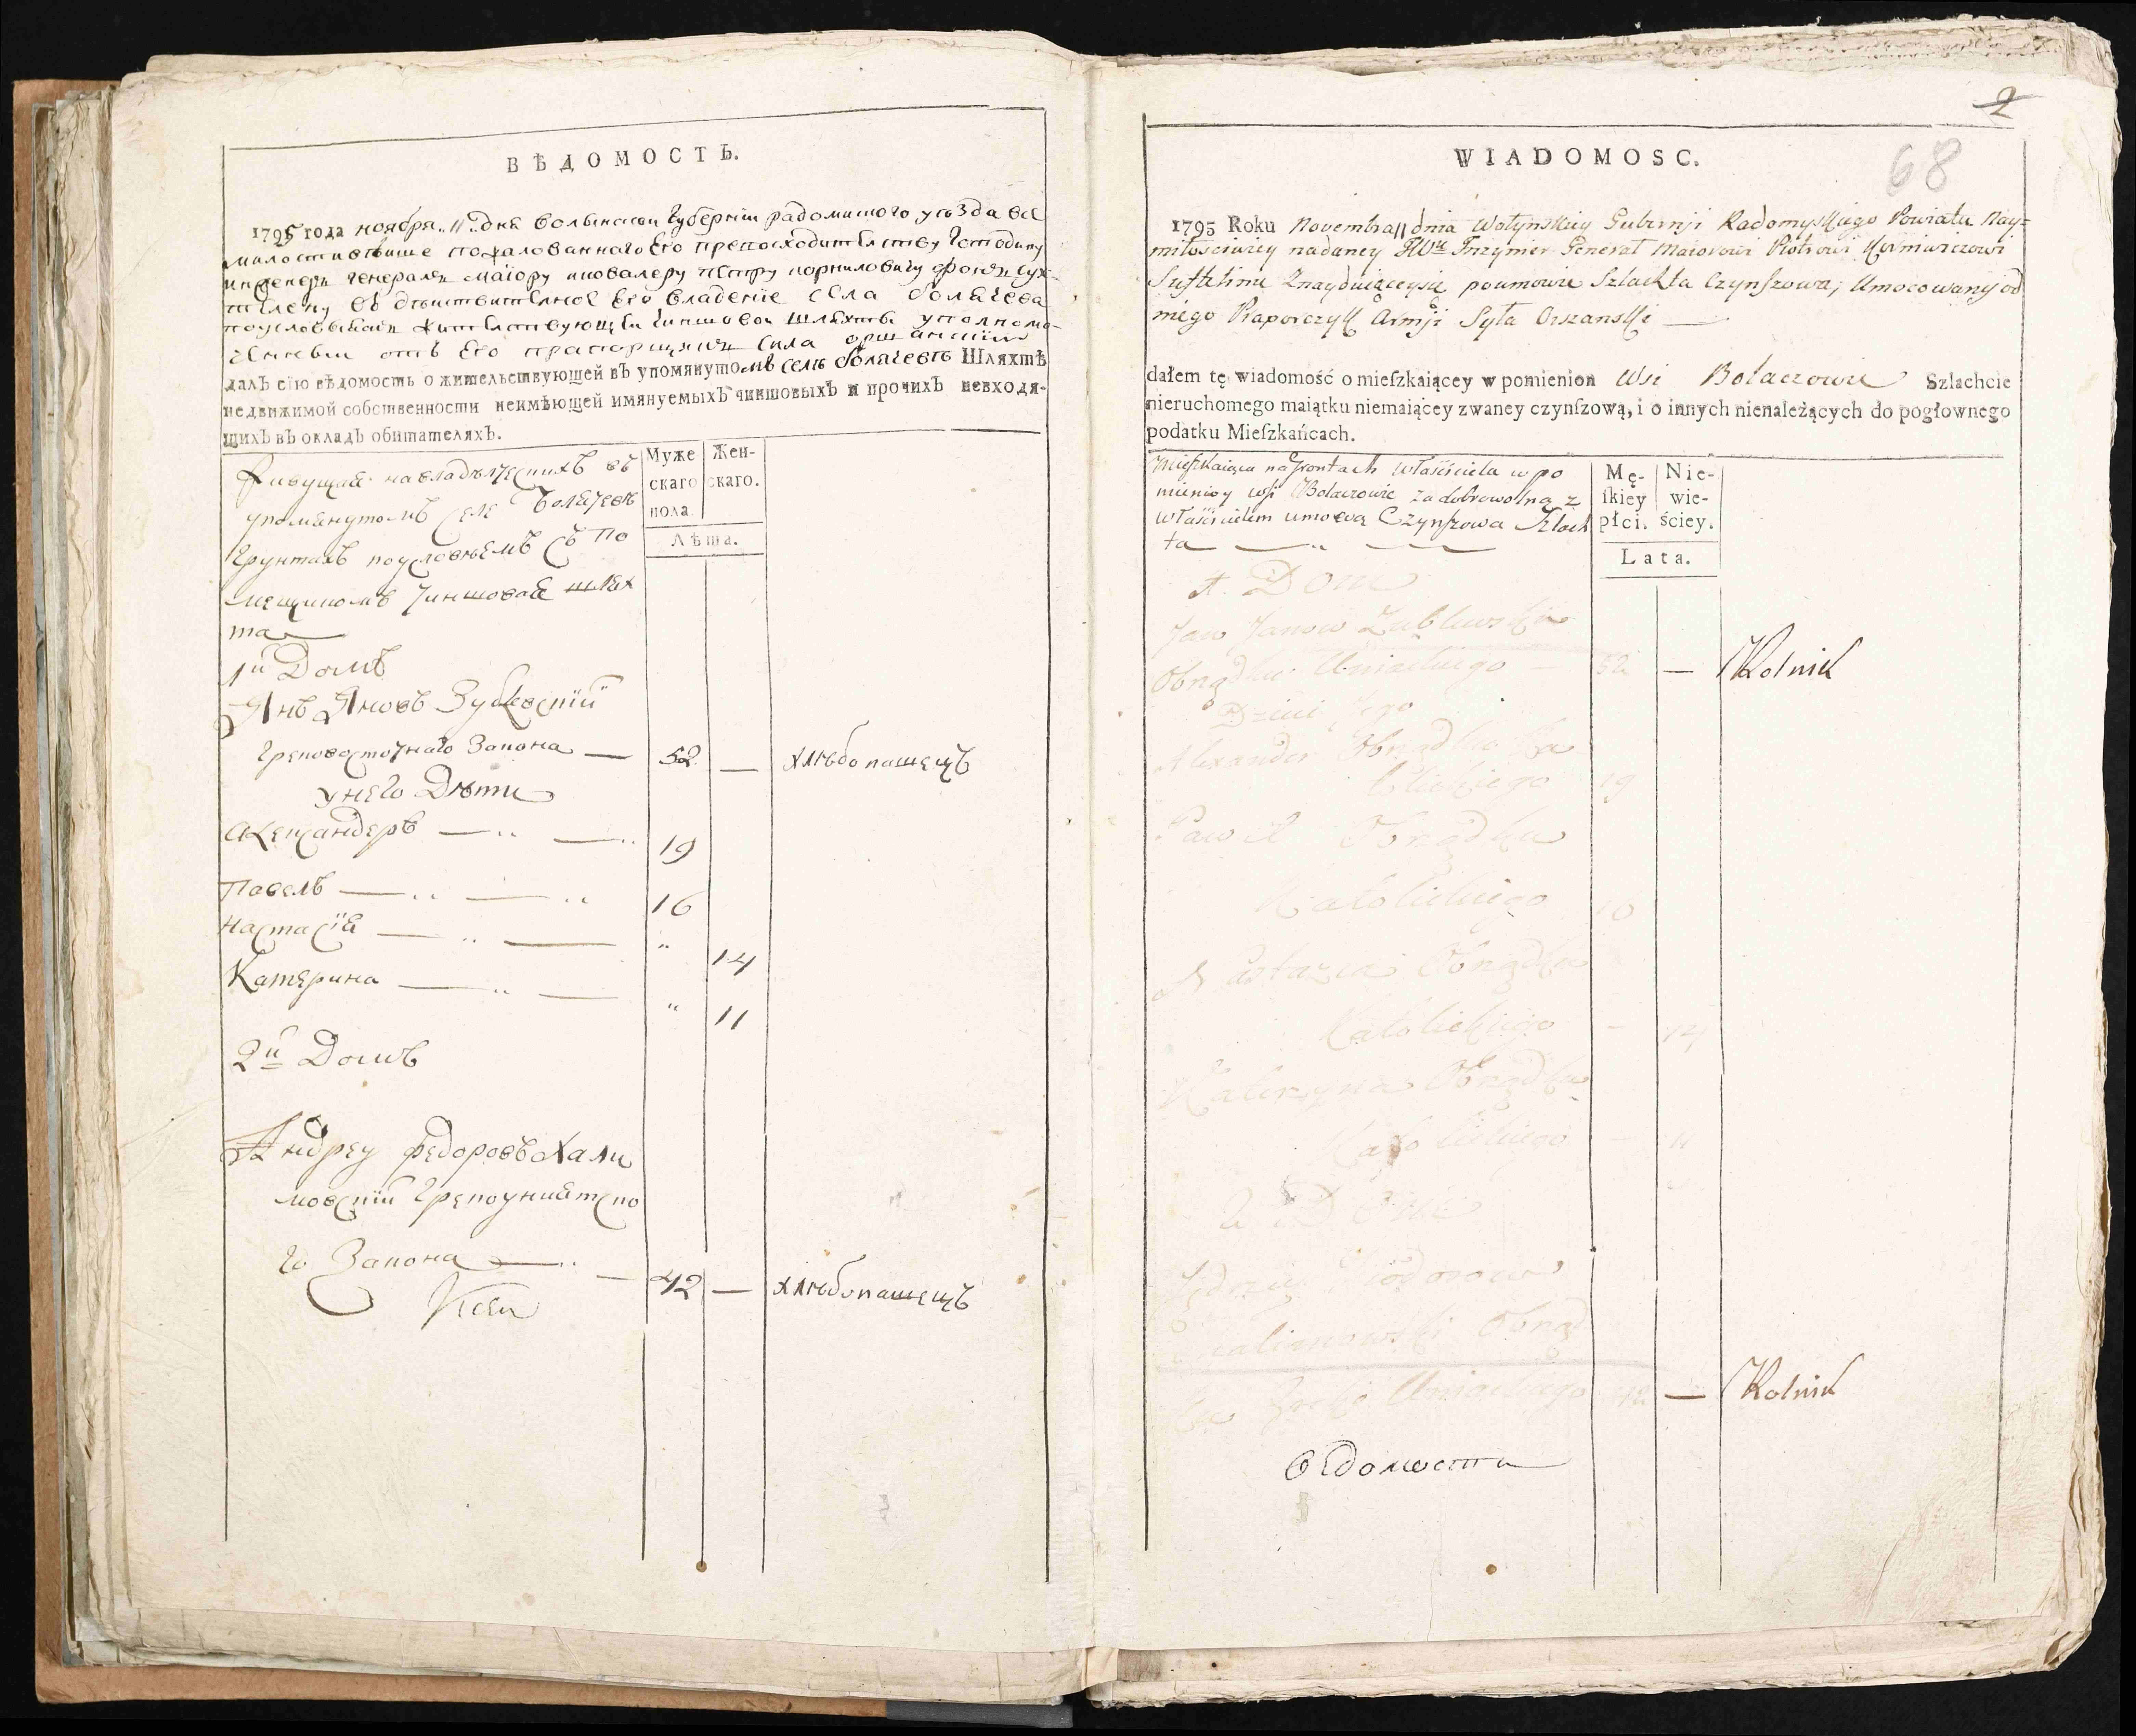 ВѢДОМОСТЬ.
1795 года ноября 11 дня волынской губерніи радомишлого уезда все
милостивѣйше пожалованнаго Его превосходительству Господину
инженеръ генералъ маіору и кавалеру петру корниловичу фонъ сух-
телену въ дѣйствителное Его владение села болячева
жителствующей чиншовой шляхты уполномо-
ченный отъ Его прапорщикъ сила оршанский
далъ сію вѣдомость о жительствующей въ упомянутомъ селѣ болячевѣ Шляхтѣ
недвижимой собственности неимѣющей имянуемыхъ чиншовыхъ и прочихъ невходя-
щихъ въ окладъ обитателяхъ.
Муже Жен-
скаго скаго.
пола.
Лѣта.
Живущая на владѣлческихъ въ
упомянутомъ селе болячевѣ
грунтахъ по условіемъ съ по
мещикомъ чиншовая шлях
та
1й Домъ
Янъ Яновъ Зубковский
грековосточнаго Закона — 52 — хлѣбопашецъ
у него Дѣти
Александеръ — 19
Павелъ — 16
Настасія — " 14
Катерина — " 11
2й Домъ
Андрей федоровъ Хали
мовский грекоуниятско
го Закона — 42 — хлѣбопашецъ
2
68
WIADOMOSC.
1795 Roku Novembra 11 dnia Wołynskiey Gubernji Radomyskiego Powiatu Nay=
miłościwiey nadaney Inzynier Generał Maiorowi Piotrowi
Suchtelinu Znayduiąceysię poumowie Szlachta Czynszowa; Umocowany od
niego Praporczyk Armji Syła Orszanski —
dałem tę wiadomość o mieſzkaiącey w pomienion Wsi Bolaczowie Szlachcie
nieruchomego maiątku niemaiącey zwaney czynſzową, i o innych nienależących do pogłownego
podatku Mieſzkańcach.
Mę- Nie-
ſkiey wie-
płci. ściey.
Lata.
Mieszkaiąca na Gruntach Właściciela w po
mieniony wsi Bolaczowie za dobrowolną z
właścicielem umową Czynszowa Szlach
ta —
1. Dom
Jan Janow Zubkowski
Obrządku Uniackiego — 52 — Rolnik
Dzieci Jego
Alexander Obrządku Ka
tolickiego 19
Paweł Obrządku
Katolickiego 16
Nastazia Obrządku
Katolickiego - 14
Katerzyna Obrządku
Katolickiego - 11
2 Dom
Jędrzey Fiodorow
Halimowski Obrząd
ku Uniackiego 42 — Rolnik
ведомости